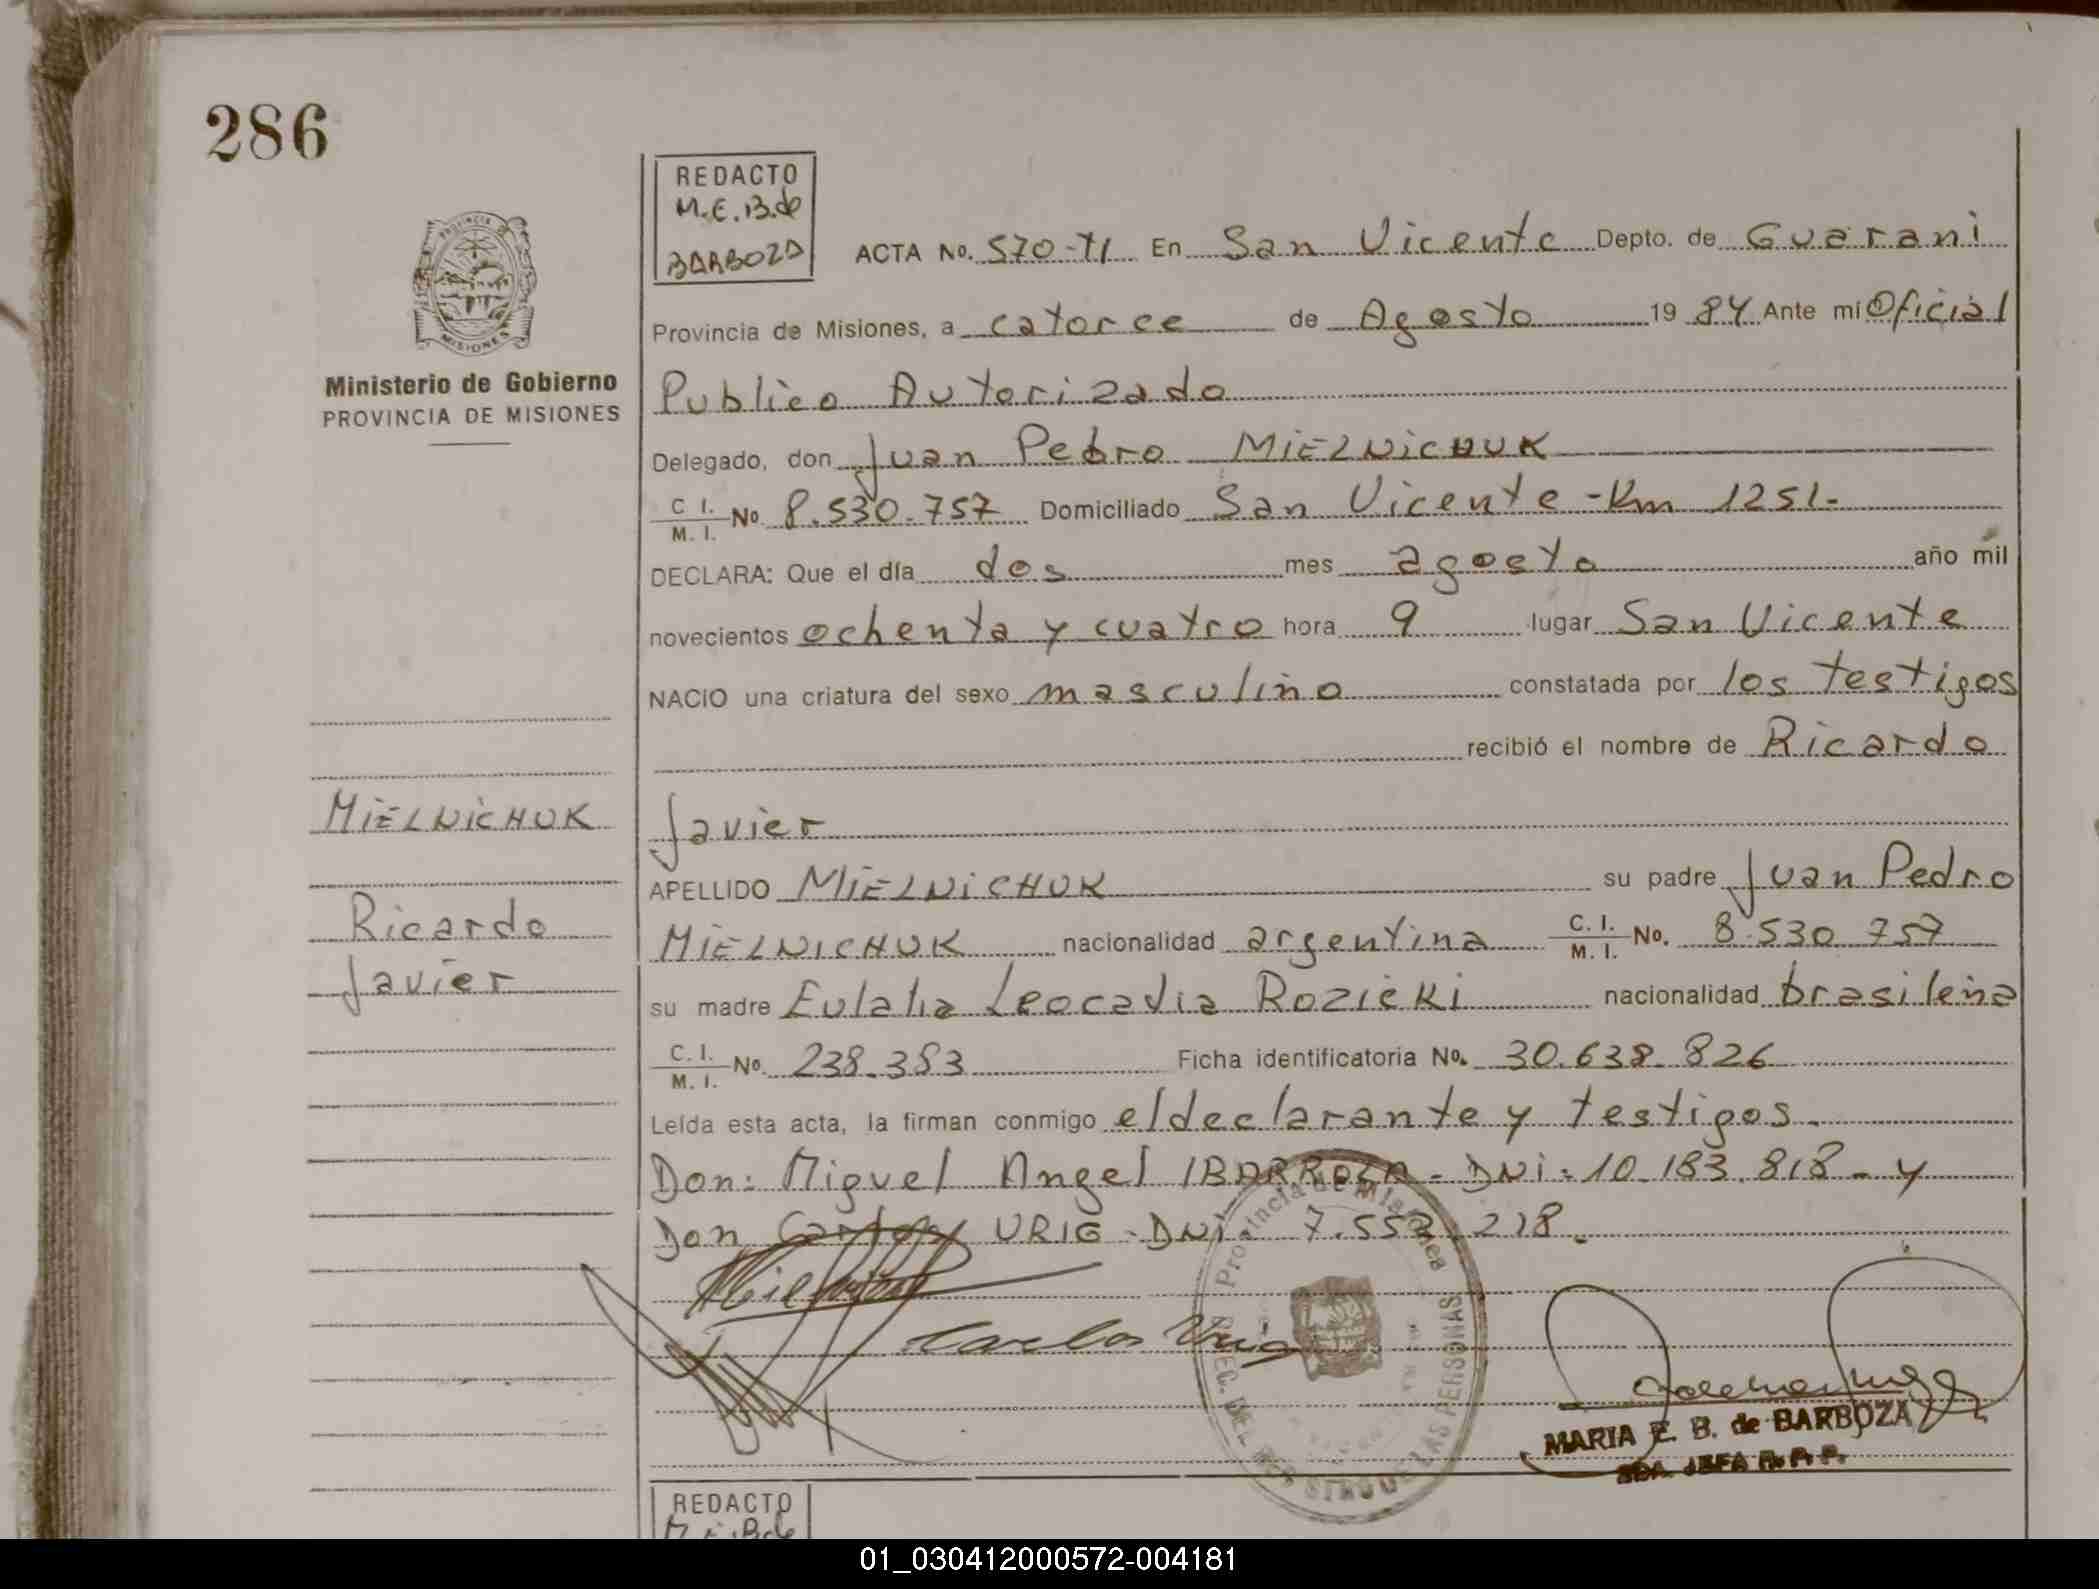 286
REDACTO
M.E.B. de
BARBOZA
ACTA No. 570-TI En San Vicente Depto. de Guarani
Provincia de Misiones, a catorce de Agosto 19 84 Ante mí Oficial
Publico Autorizado
Delegado, don Juan Pedro MIELNICHUK
C. I. M. I. No 8.530.757 Domiciliado San Vicente - Km 1251-
DECLARA: Que el día dos mes agosto año mil
novecientos ochenta y cuatro hora 9 lugar San Vicente
NACIO una criatura del sexo masculino constatada por los testigos
recibió el nombre de Ricardo
Javier
APELLIDO MIELNICHUK su padre Juan Pedro
MIELNICHUK nacionalidad argentina C. I. M. I. No. 8.530.757
su madre Eulalia Leocadia ROZICKI nacionalidad brasileña
C. I. M. I. No. 238.383 Ficha identificatoria No. 30.638.826
Leída esta acta, la firman conmigo el declarante y testigos.
Don: Miguel Angel IBARROLA - DNI: 10.183.818 - y
Don Carlos URIG - DNI. 7.553.218.
Carlos Urig
PROVINCIA DE MISIONES
Ministerio de Gobierno
PROVINCIA DE MISIONES
MIELNICHUK
Ricardo
Javier
Provincia de Misiones
DEL REGISTRO DE LAS PERSONAS
MARIA E. B. de BARBOZA
REDACTO
01_030412000572-004181